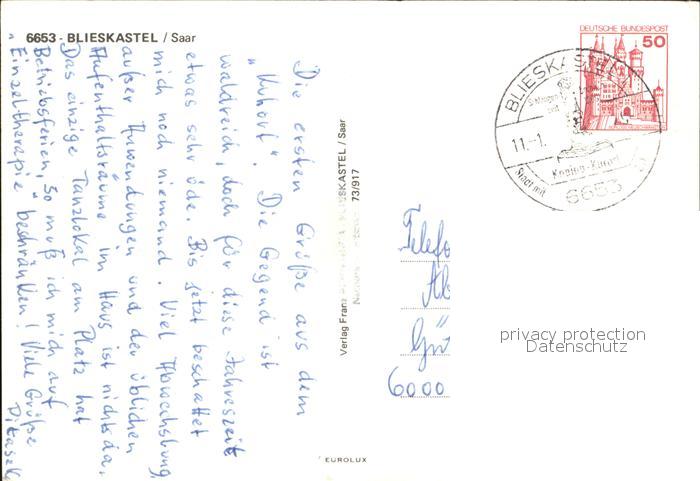 6653 - BLIESKASTEL / Saar
Die ersten Grüße aus dem
„Kuhort“. Die Gegend ist
waldreich, doch für diese Jahreszeit
etwas sehr öde. Bis jetzt beschattet
mich noch niemand. Viel Abwechslung
außer Anwendungen und der üblichen
Aufenthaltsräume im Haus ist nichts da.
Das einzige Tanzlokal am Platz hat
Betriebsferien, so muß ich mich auf
„Einzeltherapie“ beschränken! Viele Grüße
Verlag Franz
BLIESKASTEL / Saar
73/917
EUROLUX
DEUTSCHE BUNDESPOST
50
BLIESKASTEL
11.-1.
Stadt mit
Kneipp-Kurort
6653
Telefo
Ak
Gü
6000
privacy protection
Datenschutz